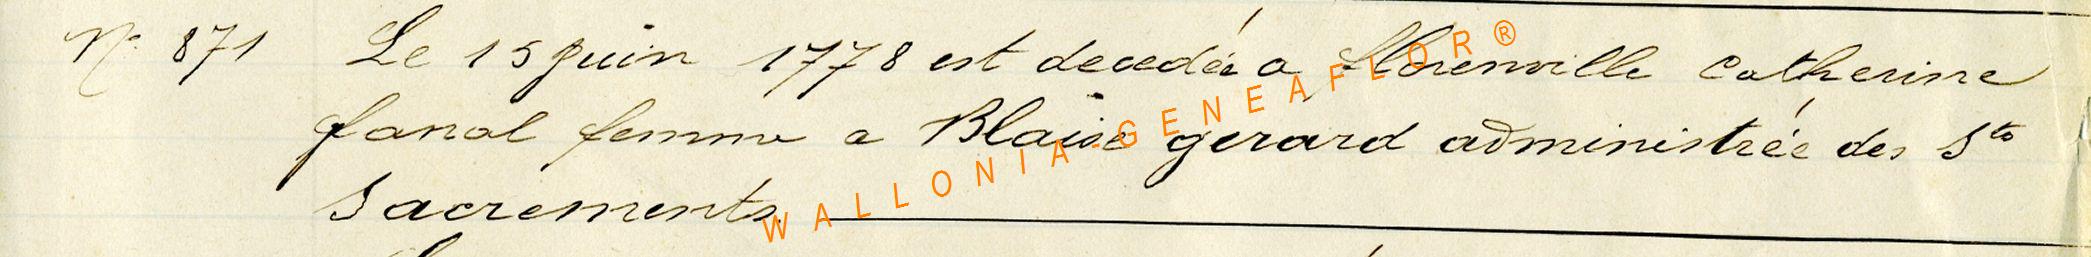 N° 871 Le 15 juin 1778 est decedée a florenville Catherine
fanal femme a Blaise gerard administrée des Sts
Sacrements
WALLONIA-GENEAFLOR®